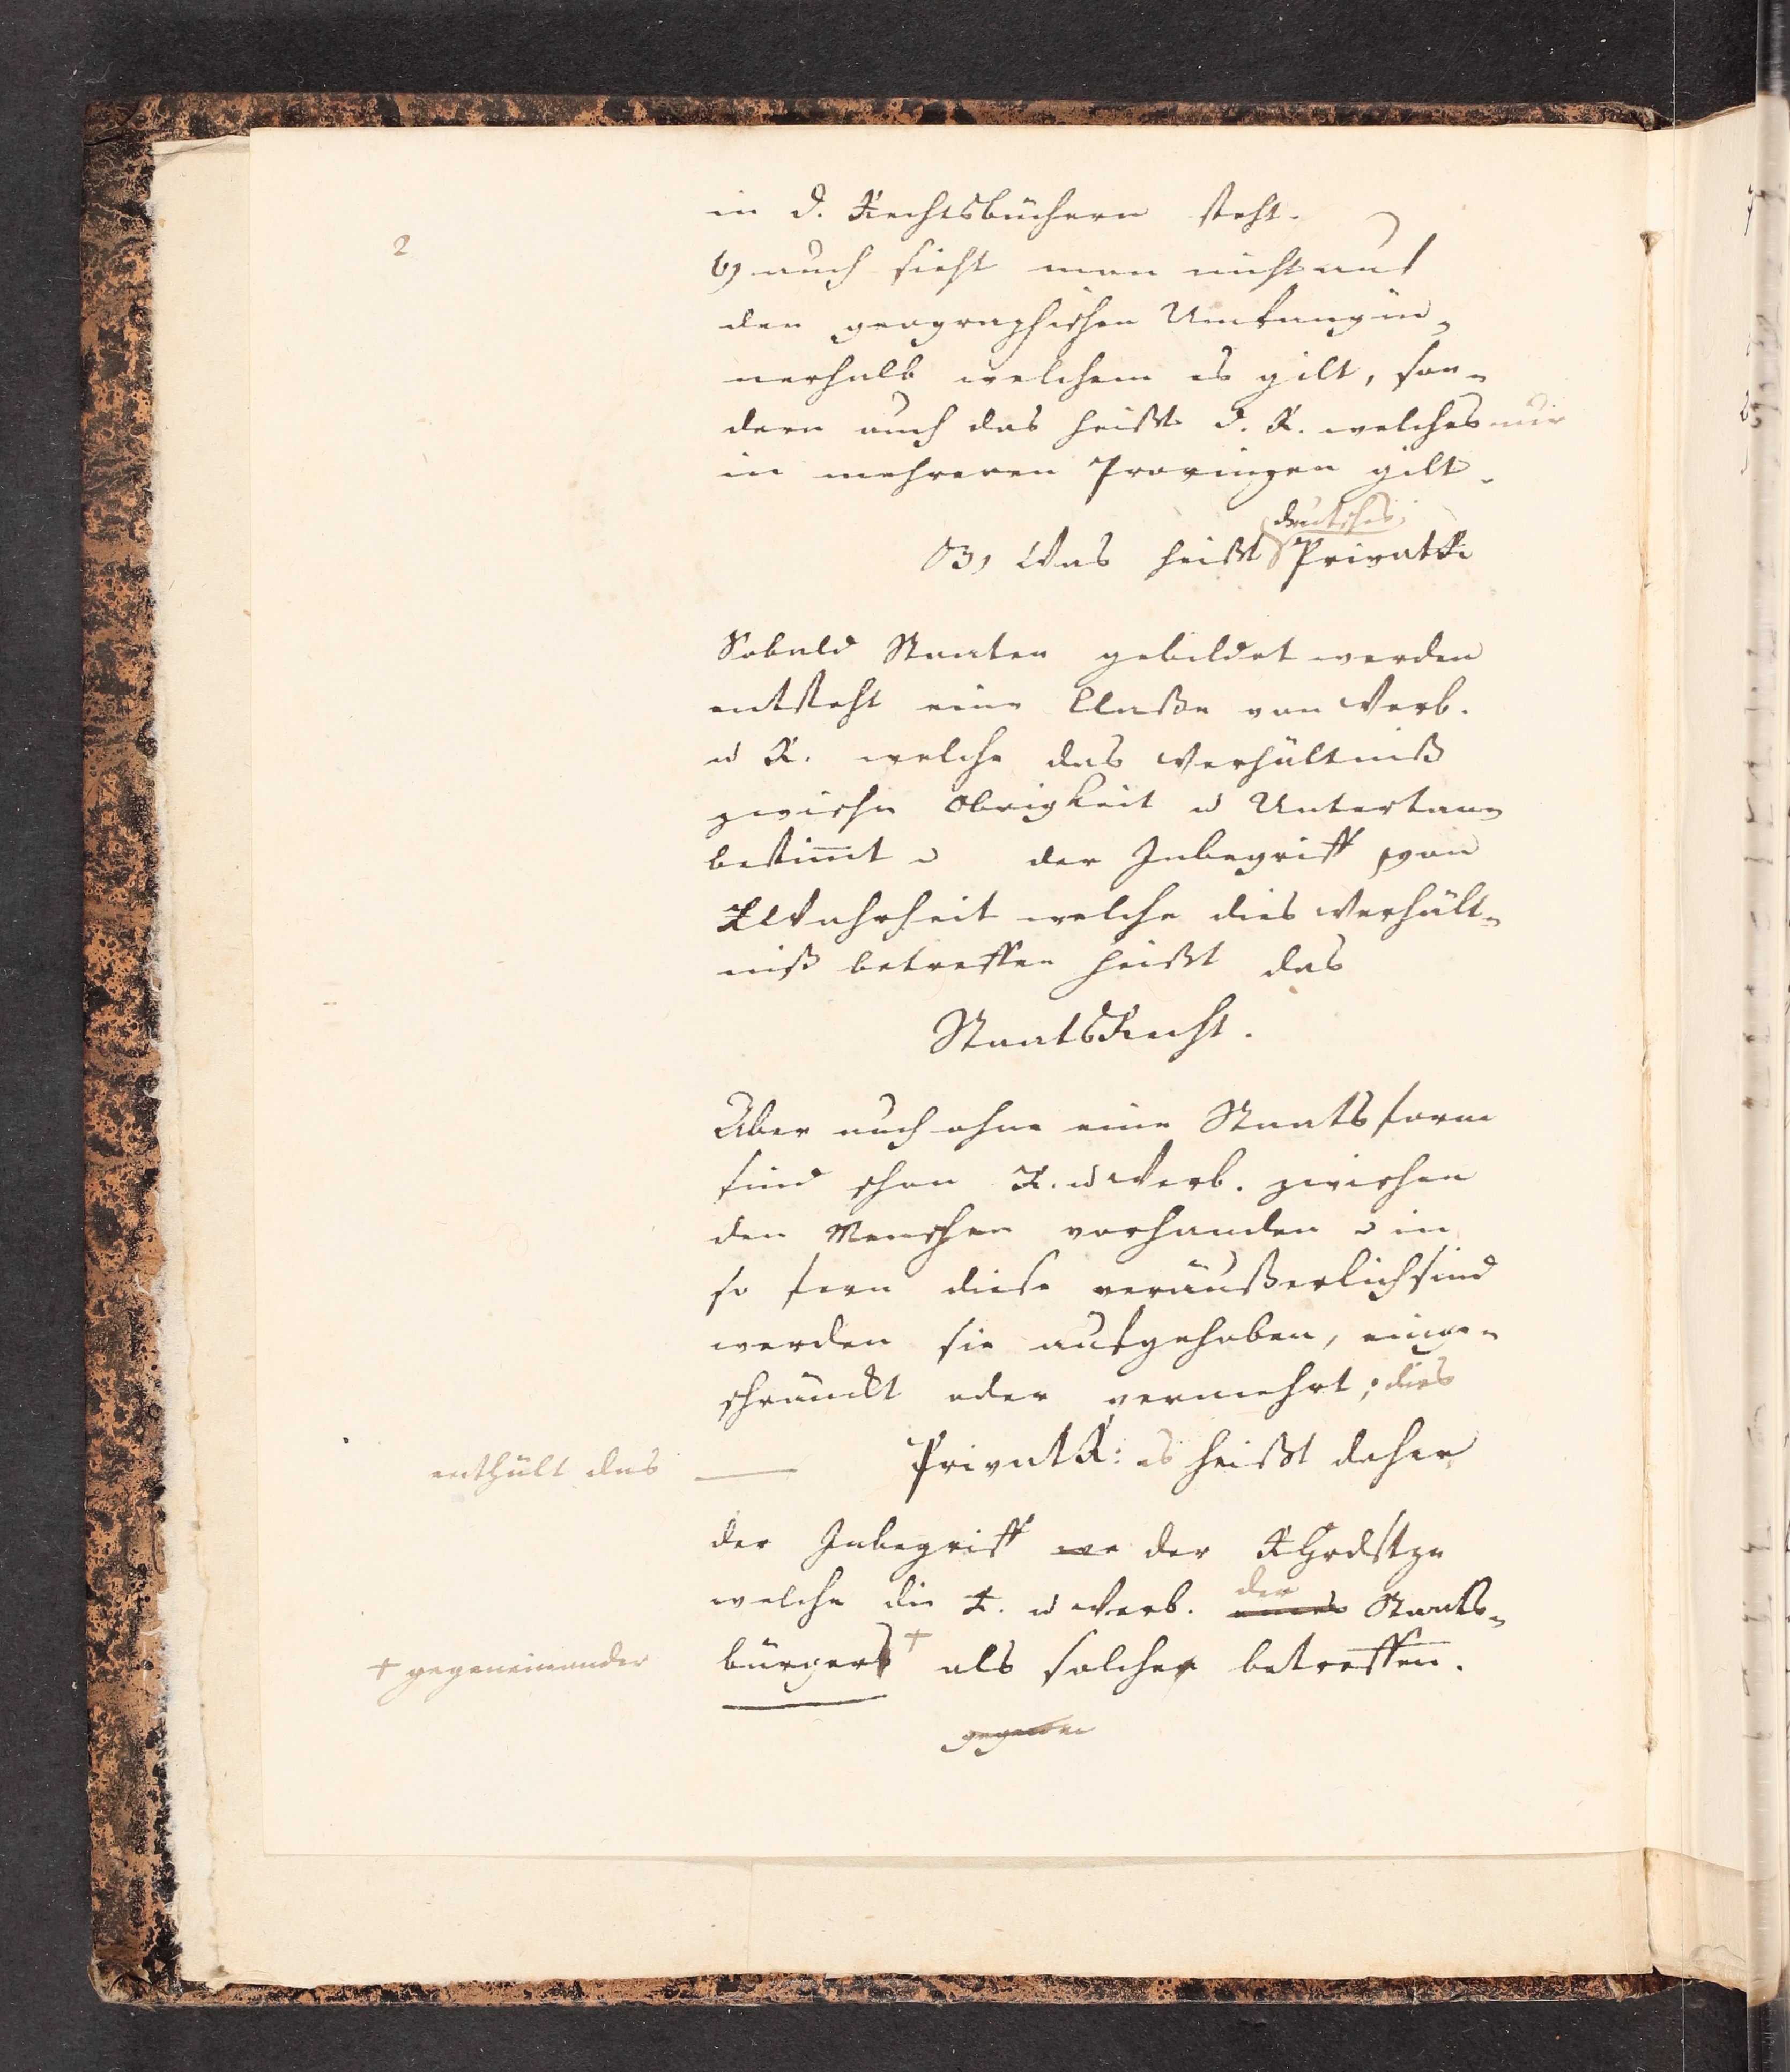 2
in d. Rechtsbüchern steht.
b) auch sieht man nicht auf
den geographischen Umfang in-
nerhalb welchem es gilt, son-
dern auch das heißt d. R. welches nur
in mehreren Provinzen gilt.
deutsches
B, Was heißt PrivatR
Sobald Staaten gebildet werden
entsteht eine Claße von Verb.
u R. welche das Verhältniß
zwischn Obrigkeit u Untertan
bestimt u der Inbegriff von
RWahrheit welche dies Verhält-
niß betreffen heißt das
StaatsRecht.
Aber auch ohne eine Staatsform
sind schon R. u Verb. zwischen
den Menschen vorhanden u in
so fern diese veräußerlich sind
werden sie aufgehoben, einge-
schränckt oder vermehrt; dies
enthält das PrivatR: es heißt daher
der Inbegriff we der RGrdstze
welche die R. u Verb. der Staats-
+ gegeneinander bürger + als solcher betreffen.
gegenei